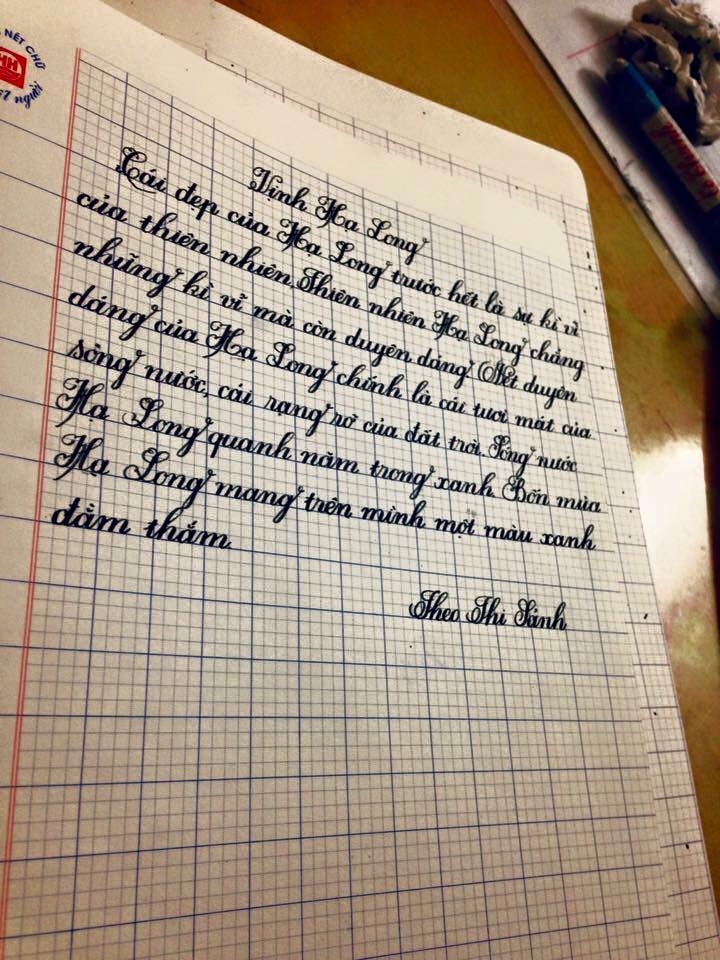 NÉT CHỮ
HH
người
Vịnh Hạ Long
Cái đẹp của Hạ Long trước hết là sự kì vĩ
của thiên nhiên. Thiên nhiên Hạ Long chẳng
những kì vĩ mà còn duyên dáng. Nét duyên
dáng của Hạ Long chính là cái tươi mát của
sóng nước, cái rạng rỡ của đất trời. Sóng nước
Hạ Long quanh năm trong xanh. Bốn mùa
Hạ Long mang trên mình một màu xanh
đằm thắm.
Theo Thi Sảnh